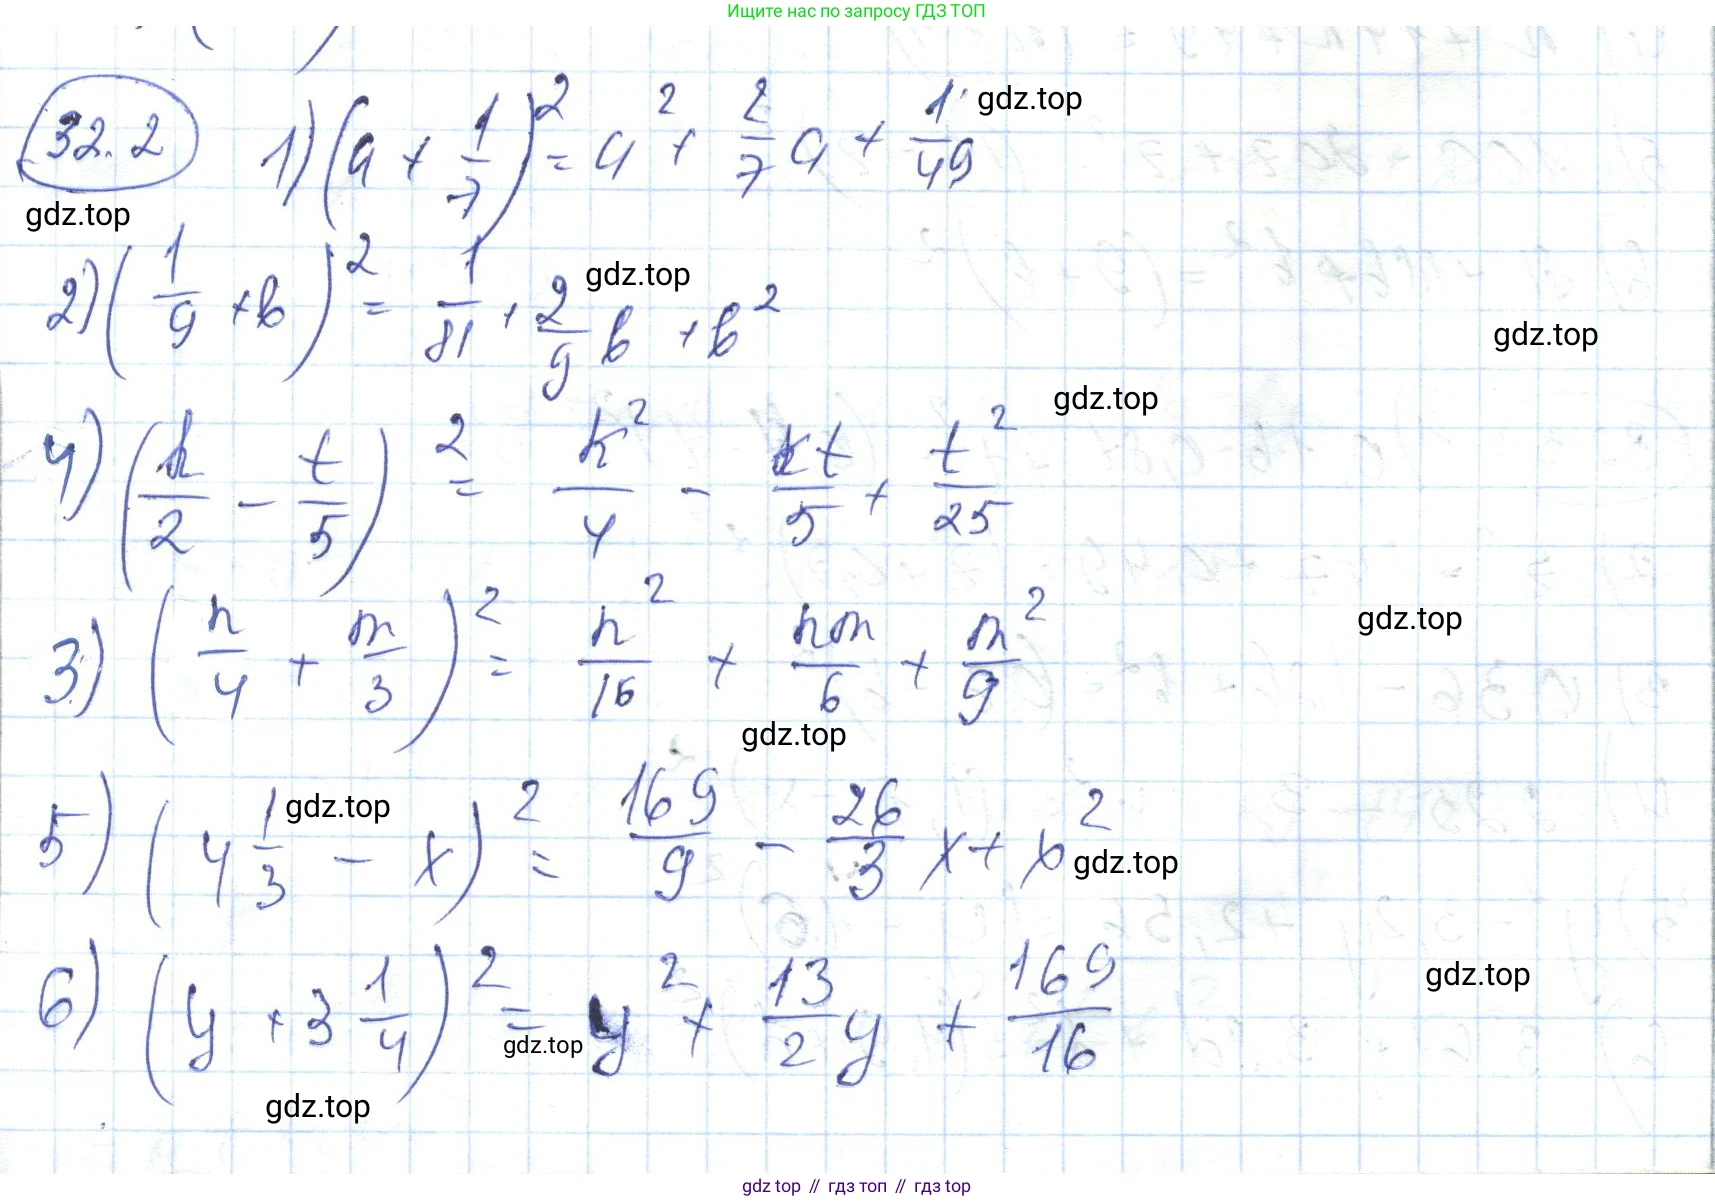 Ищите нас по запросу ГДЗ ТОП
32.2 1) (a + 1/7)² = a² + 2/7 a + 1/49 gdz.top
gdz.top
2) (1/9 + b)² = 1/81 + 2/9 b + b² gdz.top
gdz.top
gdz.top
4) (k/2 - t/5)² = k²/4 - kt/5 + t²/25
3) (n/4 + m/3)² = n²/16 + nm/6 + m²/9 gdz.top
gdz.top
5) (4 1/3 - x)² = 169/9 - 26/3 x + x² gdz.top
gdz.top
6) (y + 3 1/4)² = y² + 13/2 y + 169/16 gdz.top
gdz.top
gdz.top
gdz top // гдз топ // gdz top